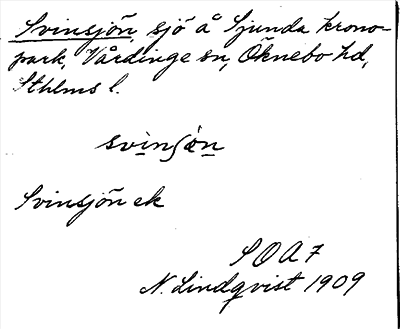 Svinsjön, sjö å Sjunda krono-
park, Vårdinge sn, Öknebo hd,
Sthlms l.
svinʃön
Svinsjön ek
S O A 7
N. Lindqvist 1909